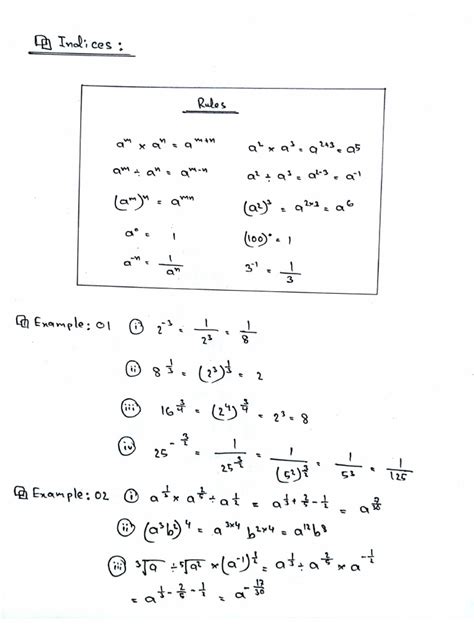 Indices:
Rules
aᵐ × aⁿ = aᵐ⁺ⁿ    a² × a³ = a²⁺³ = a⁵
aᵐ ÷ aⁿ = aᵐ⁻ⁿ    a² ÷ a³ = a²⁻³ = a⁻¹
(aᵐ)ⁿ = aᵐⁿ    (a²)³ = a²ˣ³ = a⁶
a⁰ = 1    (100)⁰ = 1
a⁻ⁿ = 1/aⁿ    3⁻¹ = 1/3
Example: 01 (i) 2⁻³ = 1/2³ = 1/8
(ii) 8^(1/3) = (2³)^(1/3) = 2
(iii) 16^(3/4) = (2⁴)^(3/4) = 2³ = 8
(iv) 25^(-3/2) = 1/25^(3/2) = 1/(5²)^(3/2) = 1/5³ = 1/125
Example: 02 (i) a^(1/3) × a^(2/5) ÷ a^(1/2) = a^(1/3 + 2/5 - 1/2) = a^(7/30)
(ii) (a³b²)⁴ = a³ˣ⁴ b²ˣ⁴ = a¹²b⁸
(iii) ³√a ÷ ⁵√a² × (a⁻¹)^(1/2) = a^(1/3) ÷ a^(2/5) × a^(-1/2)
= a^(1/3 - 2/5 - 1/2) = a^(-17/30)